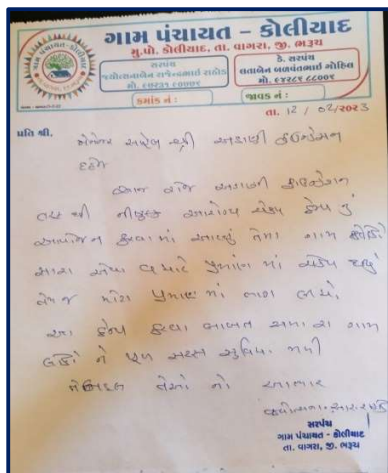 ગામ પંચાયત - કોલીયાદ
મુ.પો. કોલીયાદ, તા. વાગરા, જી. ભરૂચ
સરપંચ
જ્યોત્સનાબેન રાજેન્દ્રભાઈ રાઠોડ
ડે. સરપંચ
લતાબેન બળવંતભાઈ ગોહિલ
ક્રમાંક નં :
જાવક નં :
તા. 12 / 02/2023
પ્રતિ શ્રી,
મેનેજર સાહેબ શ્રી અદાણી ફાઉન્ડેશન
દહેજ
આજ રોજ અદાણી ફાઉન્ડેશન
તરફ થી આરોગ્ય ચેકપ કેમ્પ નું
આયોજન કરવા માં આવ્યું તેમાં ગામ લોકો
સારા એવા પ્રમાણ માં ચેકપ
તેમજ મોટા પ્રમાણ માં લાભ લીધો,
આ કેમ્પ કરવા બાબત અમારા ગામ
ને ખૂબ સરસ સુવિધા મળી
તે બદલ તેઓ નો આભાર
સરપંચ
ગામ પંચાયત - કોલીયાદ
તા. વાગરા, જી. ભરૂચ